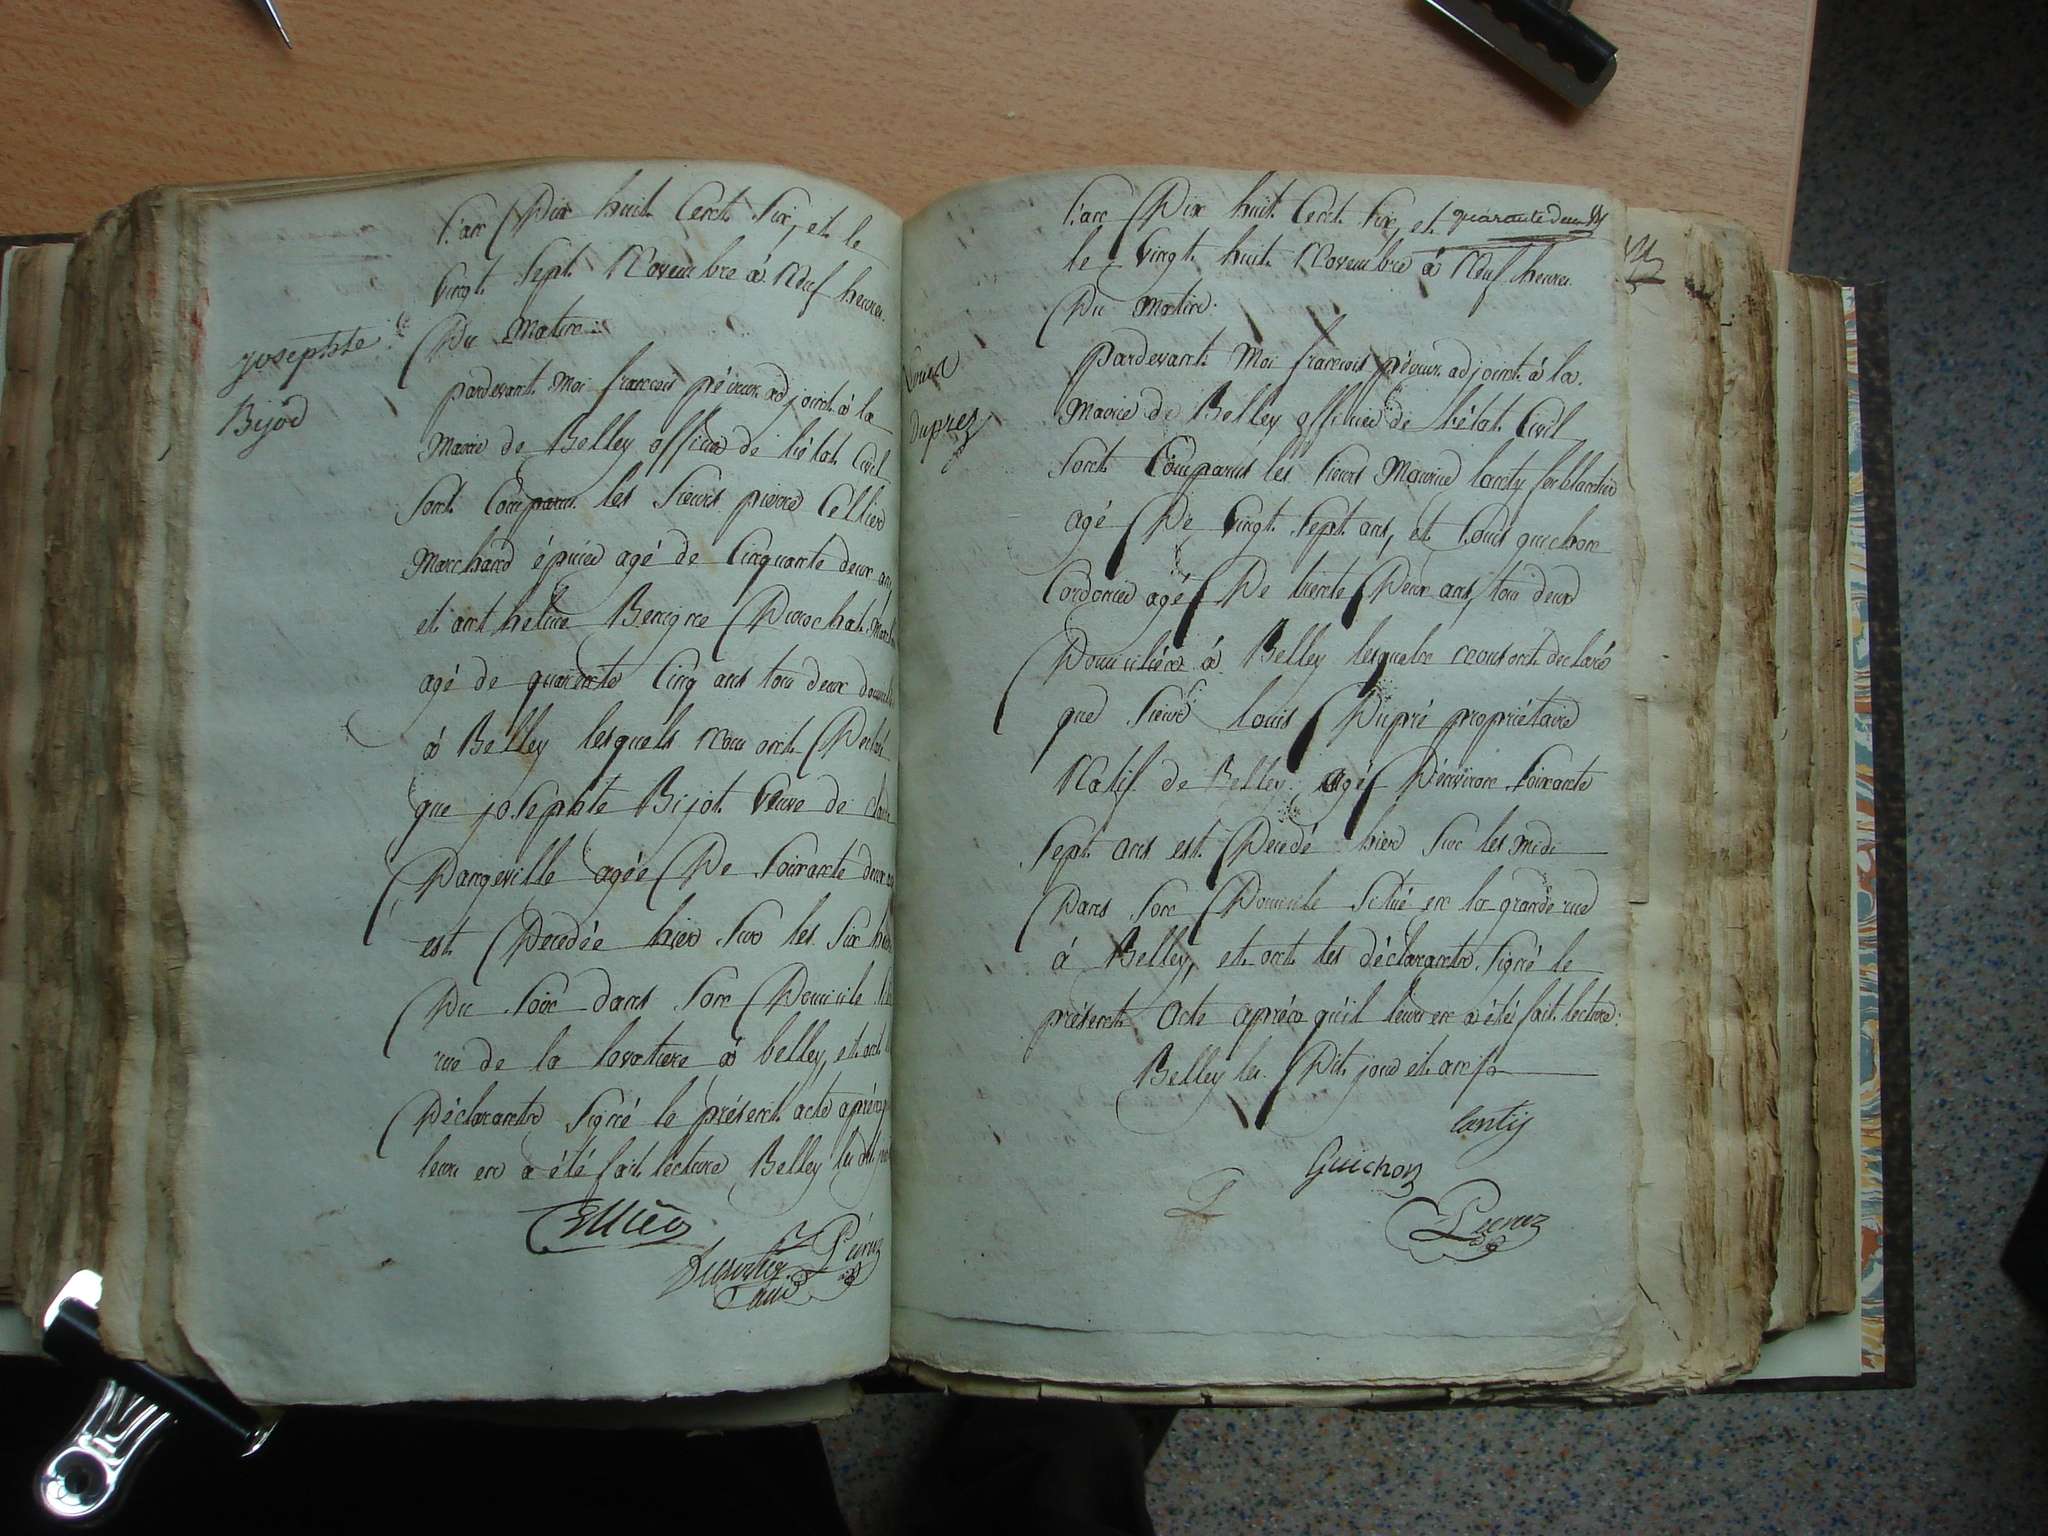 L'an Dix huit Cent Six, et le
Vingt Sept Novembre à Neuf heures
Du Matin
josephte
Bijod
pardevant Moi françois péveux adjoint à la
Mairie de Belley officier de l'état Civil
Sont Comparus les Sieurs pierre Cellier
Marchand épicier agé de Cinquante deux ans
et anthelme Benigne
agé de quarente Cinq ans tous deux
à Belley lesquels Nous ont Déclaré
que josephte Bijot Veuve de
Dangeville agée De Soixante deux
est Decedée hier Sur les Six
Du Soir dans Son Domicile
rue de la lavatiere à belley, et ont
Déclarants Signé le présent acte après
leur en a été fait lecture Belley
Cellier
L'an Dix huit Cent Six, et quarante deux
le Vingt huit Novembre à Neuf heures
Du Matin
Louis
Duprez
Pardevant Moi françois péveux adjoint à la
Mairie de Belley officier de l'état Civil
Sont Comparus les Sieurs Maurice lanty ferblantier
agé De Vingt Sept ans, et Louis guichon
Cordonier agé De trente Deux ans, tous deux
Domiciliés à Belley lesquels nous ont declaré
que Sieur Louis Dupré propriétaire
Natif de Belley agé D'environ Soixante
Sept ans est Decedé hier Sur les Midi
Dans Son Domicile Situé en la grande rue
à Belley, et ont les déclarants Signé le
présent Acte après qu'il leur en a été fait lecture
Belley les Dit jour et an
lantij
Guichon